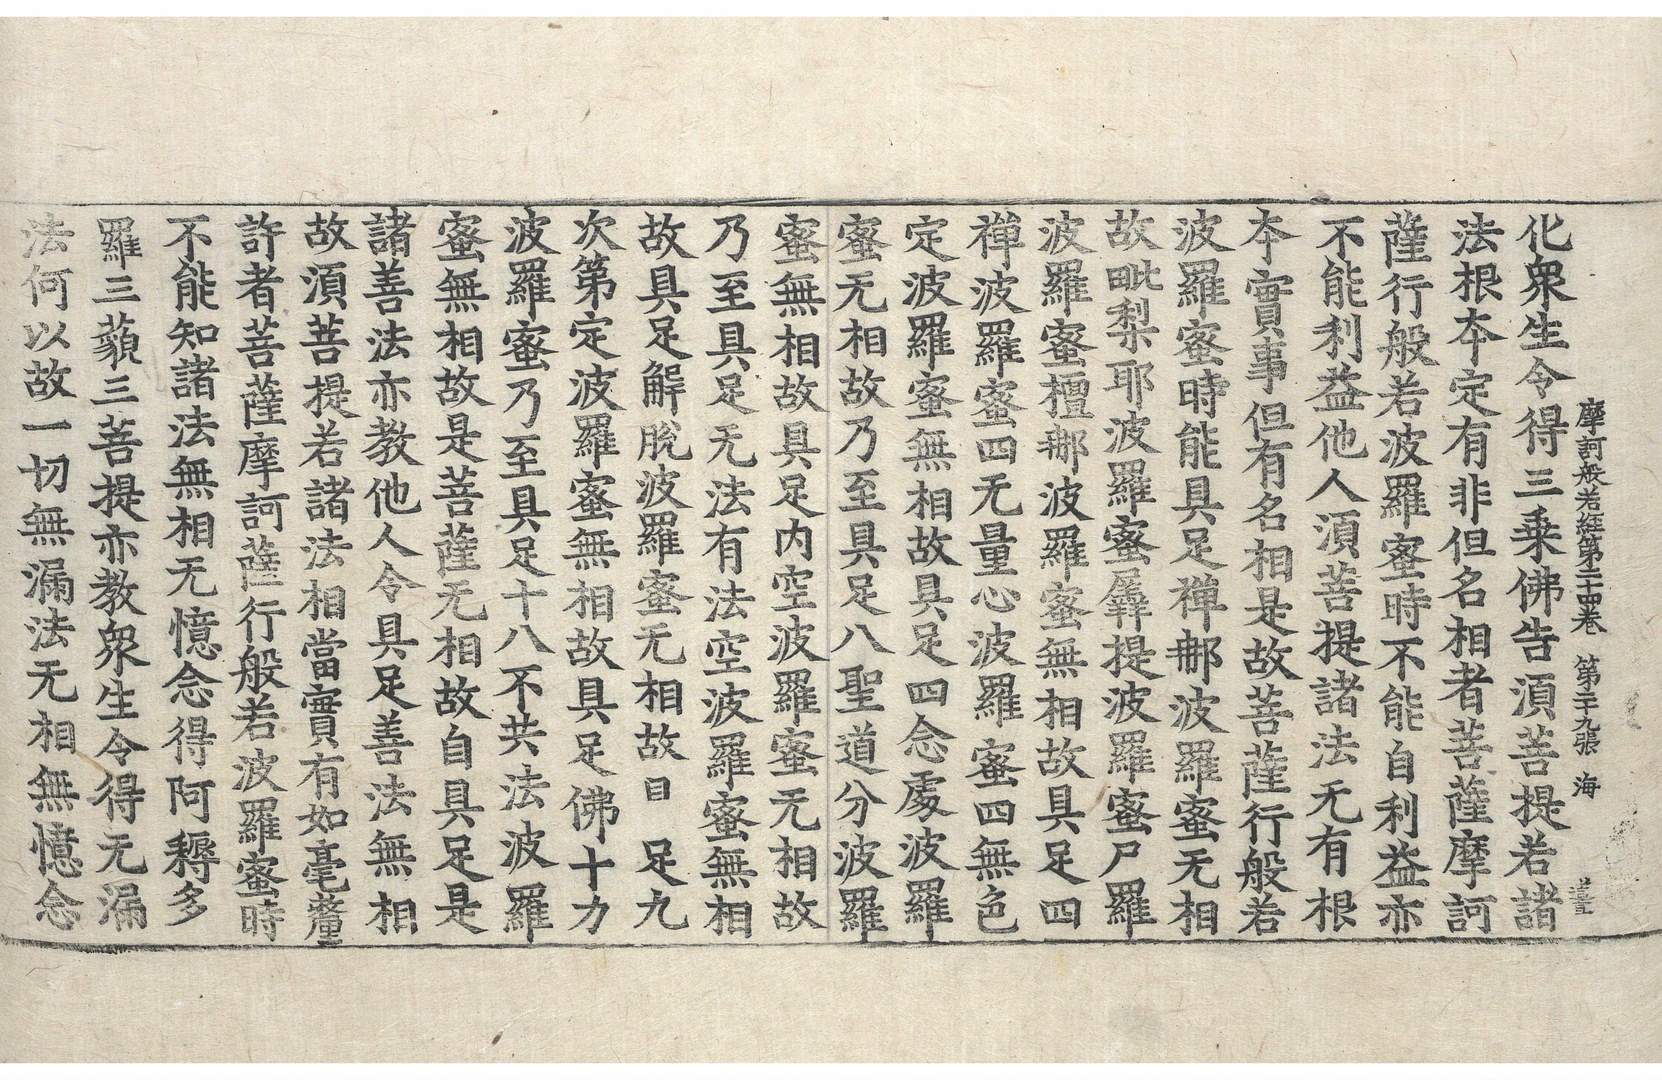 摩訶般若經第二十四卷 第二十九張 海
化衆生令得三乗佛告湏菩提若諸
法根夲定有非但名相者菩薩摩訶
薩行般若波羅蜜時不能自利益亦
不能利益他人湏菩提諸法无有根
夲實事但有名相是故菩薩行般若
波羅蜜時能具足禪那波羅蜜无相
故毗梨耶波羅蜜羼提波羅蜜尸羅
波羅蜜檀那波羅蜜無相故具足四
禪波羅蜜四无量心波羅蜜四無色
定波羅蜜無相故具足四念處波羅
蜜无相故乃至具足八聖道分波羅
蜜無相故具足内空波羅蜜无相故
乃至具足无法有法空波羅蜜無相
故具足解脫波羅蜜无相故 足九
次第定波羅蜜無相故具足佛十力
波羅蜜乃至具足十八不共法波羅
蜜無相故是菩薩无相故自具足是
諸善法亦教他人令具足善法無相
故湏菩提若諸法相當實有如毫釐
許者菩薩摩訶薩行般若波羅蜜時
不能知諸法無相无憶念得阿耨多
羅三藐三菩提亦教衆生令得无漏
法何以故一切無漏法无相無憶念